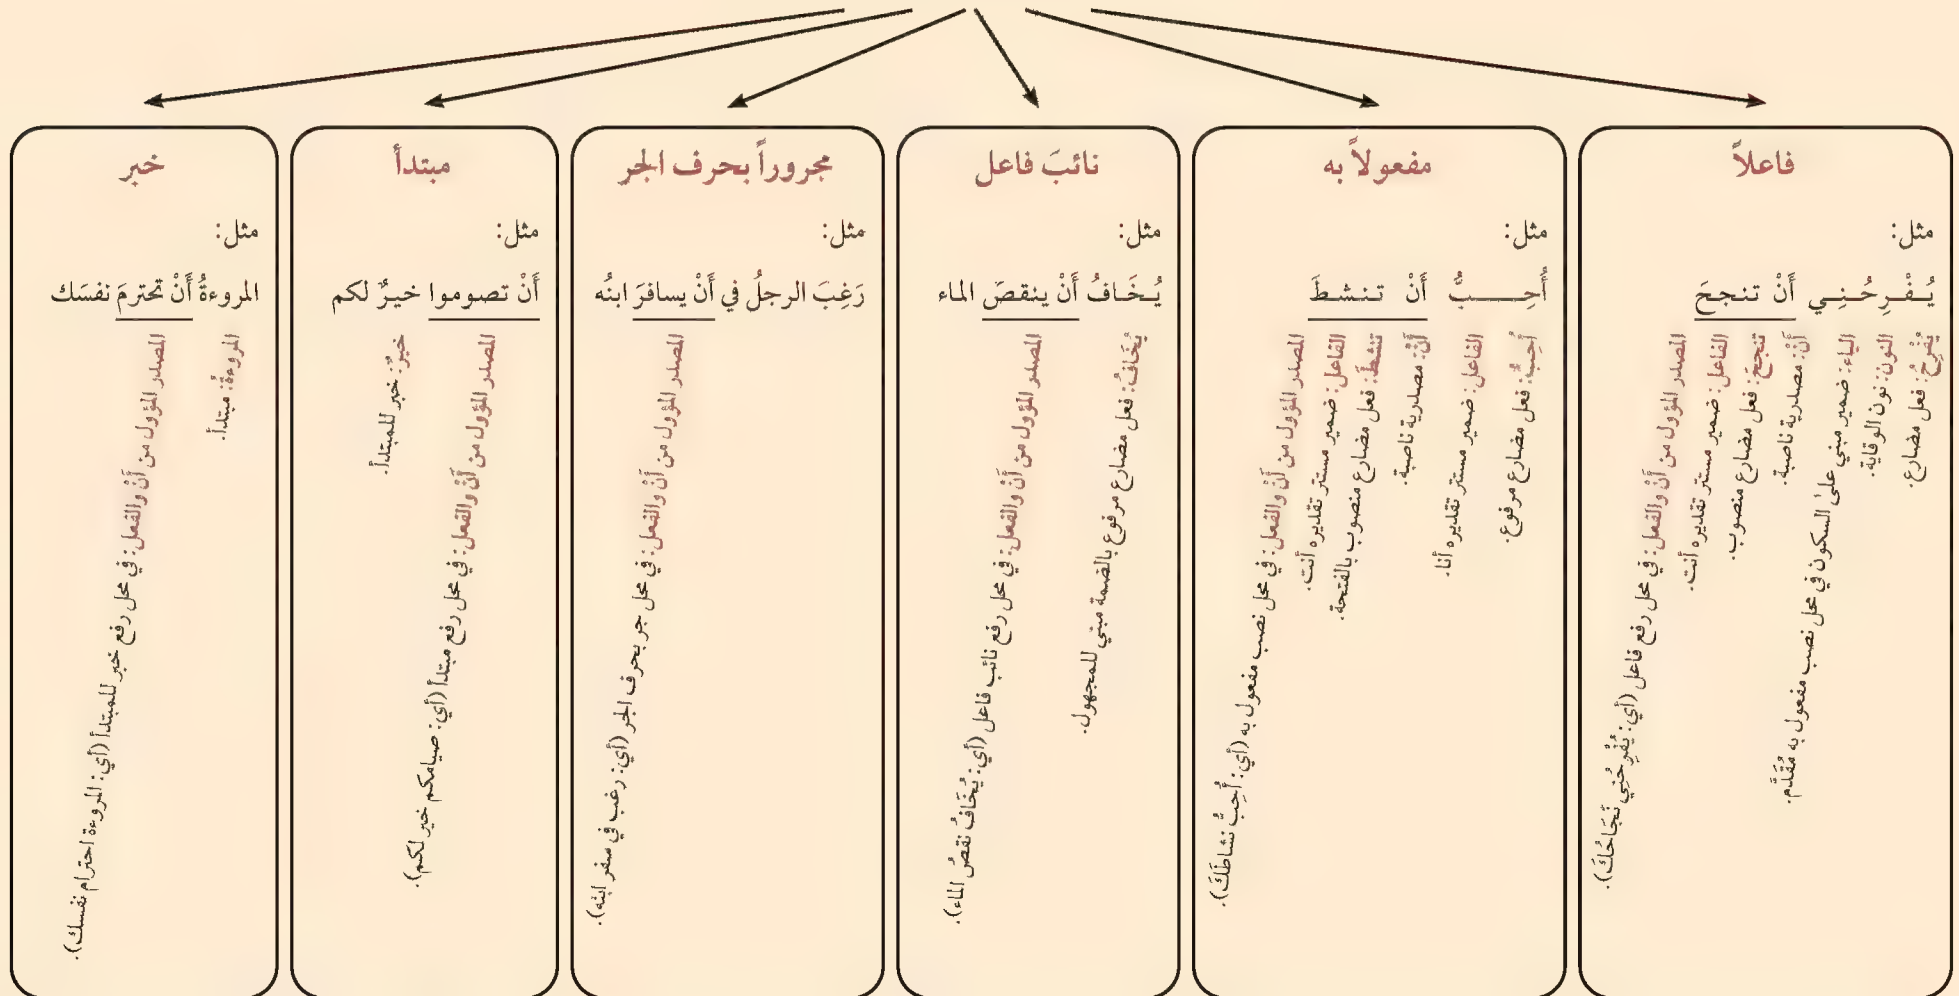 فاعلاً
مثل:
يُفْرِحُنِي أَنْ تنجحَ
يُفْرِحُ: فعل مضارع.
النون: نون الوقاية.
الياء: ضمير مبني على السكون في محل نصب مفعول به مُقَدَّم.
أَنْ: مصدرية ناصبة.
تنجحَ: فعل مضارع منصوب.
الفاعل: ضمير مستتر تقديره أنت.
المصدر المؤول من أَنْ والفعل: في محل رفع فاعل (أي: يُفْرِحُنِي نَجَاحُكَ).
مفعولاً به
مثل:
أُحِبُّ أَنْ تنشطَ
أُحِبُّ: فعل مضارع مرفوع.
الفاعل: ضمير مستتر تقديره أنا.
أَنْ: مصدرية ناصبة.
تنشطَ: فعل مضارع منصوب بالفتحة.
الفاعل: ضمير مستتر تقديره أنت.
المصدر المؤول من أَنْ والفعل: في محل نصب مفعول به (أي: أُحِبُّ نشاطَكَ).
نائبَ فاعل
مثل:
يُخَافُ أَنْ ينقصَ الماء
يُخَافُ: فعل مضارع مرفوع بالضمة مبني للمجهول.
المصدر المؤول من أَنْ والفعل: في محل رفع نائب فاعل (أي: يُخَافُ نقصُ الماء).
مجروراً بحرف الجر
مثل:
رَغِبَ الرجلُ في أَنْ يسافرَ ابنُه
المصدر المؤول من أَنْ والفعل: في محل جر بحرف الجر (أي: رغب في سفر ابنه).
مبتدأ
مثل:
أَنْ تصوموا خيرٌ لكم
خيرٌ: خبر للمبتدأ.
المصدر المؤول من أَنْ والفعل: في محل رفع مبتدأ (أي: صيامكم خير لكم).
خبر
مثل:
المروءةُ أَنْ تحترمَ نفسَك
المروءةُ: مبتدأ.
المصدر المؤول من أَنْ والفعل: في محل رفع خبر للمبتدأ (أي: المروءة احترام نفسك).